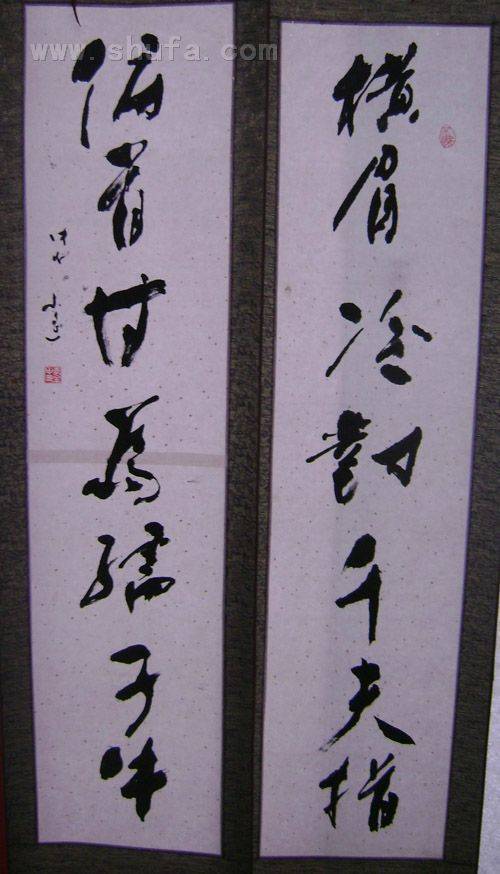 www.shufa.com
橫眉冷對千夫指
俯首甘為孺子牛